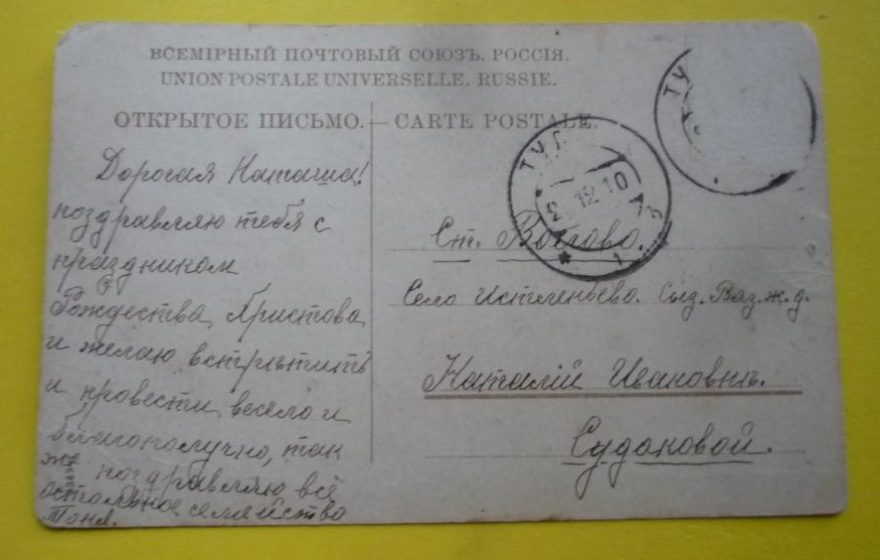 ВСЕМІРНЫЙ ПОЧТОВЫЙ СОЮЗЪ. РОССІЯ.
UNION POSTALE UNIVERSELLE. RUSSIE.
ОТКРЫТОЕ ПИСЬМО. — CARTE POSTALE.
Дорогая Наташа!
поздравляю тебя с
праздником
Рождества Христова
и желаю встрѣтить
и провести весело и
благополучно, так
же поздравляю всё
остальное семейство
Тоня.
ТУЛ
12 10
ТУ
Ст. Волово.
Село Истленьево. Сыз. Вяз. ж. д.
Наталіи Ивановнѣ.
Судаковой.